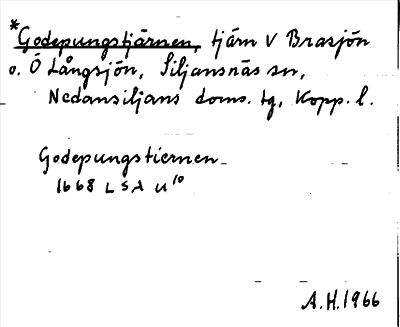 *Godepungstjärnen, tjärn V Brasjön
o. Ö Långsjön, Siljansnäs sn,
Nedansiljans doms. tg, Kopp. l.
Godepungstiernen
1668 LSA U10
A.H. 1966